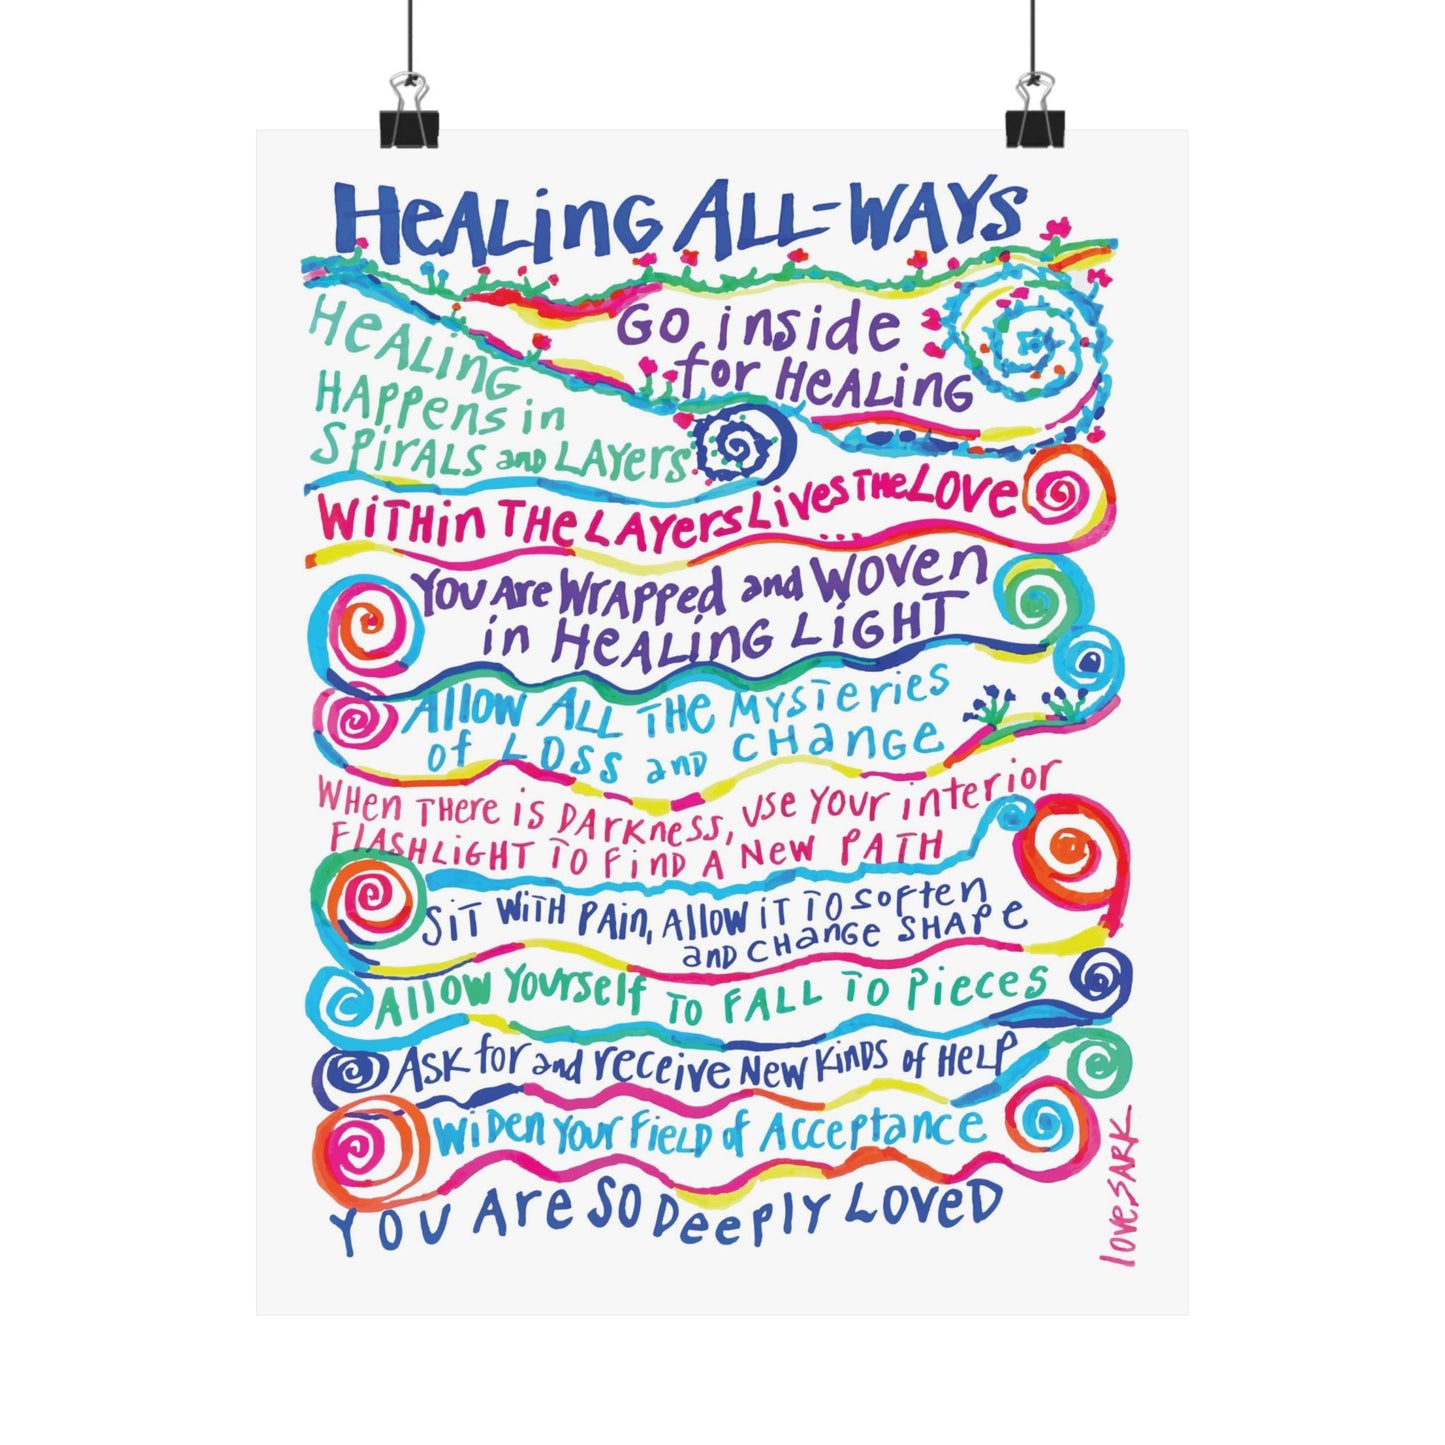 HeALinG ALL-WAYS
GO inside
for HeALinG
HeALinG
HAPPens in
SPirALS anD LAYERS
WiTHin THe LAYers Lives THe LOVe...
YOU Are WrAPPed and WOVen
in HeALinG LiGHT
Allow ALL THe MYSTeries
of LOSS anD CHanGe
WHen THere is DArKness, Use YOUr interior
FLASHLiGHT TO FinD A New PATH
SiT WiTH PAin, Allow iT TO SOFTen
anD CHanGe SHAPe
Allow YOUrself TO FALL TO Pieces
ASK for and receive New Kinds of HeLP
WiDen YOUr FieLD of AccePTance
YOU Are SO DeePLY LOVeD
love, SARK